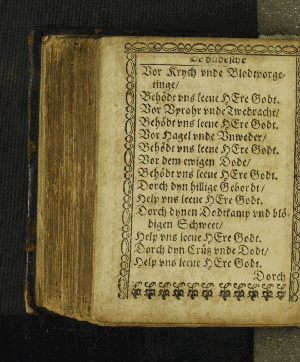 De düdesche
Vor Krych vnde Blodtvorge-
tinge/
Behödt vns leeue HEre Godt.
Vor Vprohr vnde Twedracht/
Behödt vns leeue HEre Godt.
Vor Hagel vnde Vnweder/
Behödt vns leeue HEre Godt.
Vor dem ewigen Dode/
Behödt vns leeue HEre Godt.
Dorch dyn hillige Gebordt/
Help vns leeue HEre Godt.
Dorch dynen Dodtkamp vnd blö-
digen Schweet/
Help vns leeue HEre Godt.
Dorch dyn Crütz vnde Dodt/
Help vns leeue HEre Godt.
Dorch